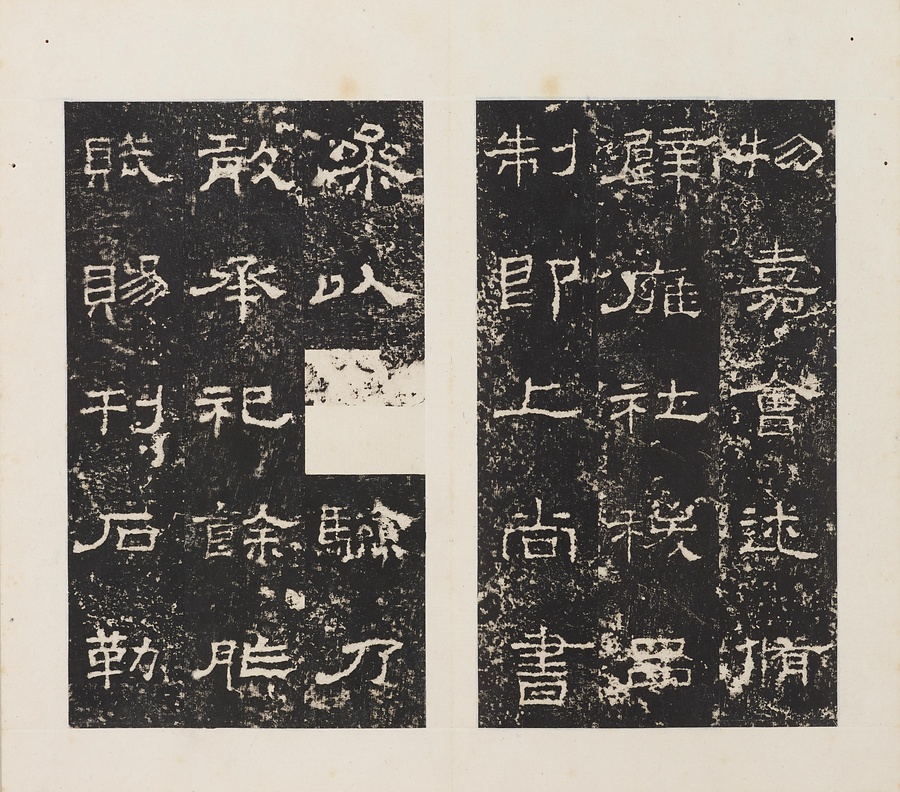 物嘉會述脩
辟雍社稷品
制即上尚書
參以驗乃
敢承祀餘胙
賦賜刊石勒